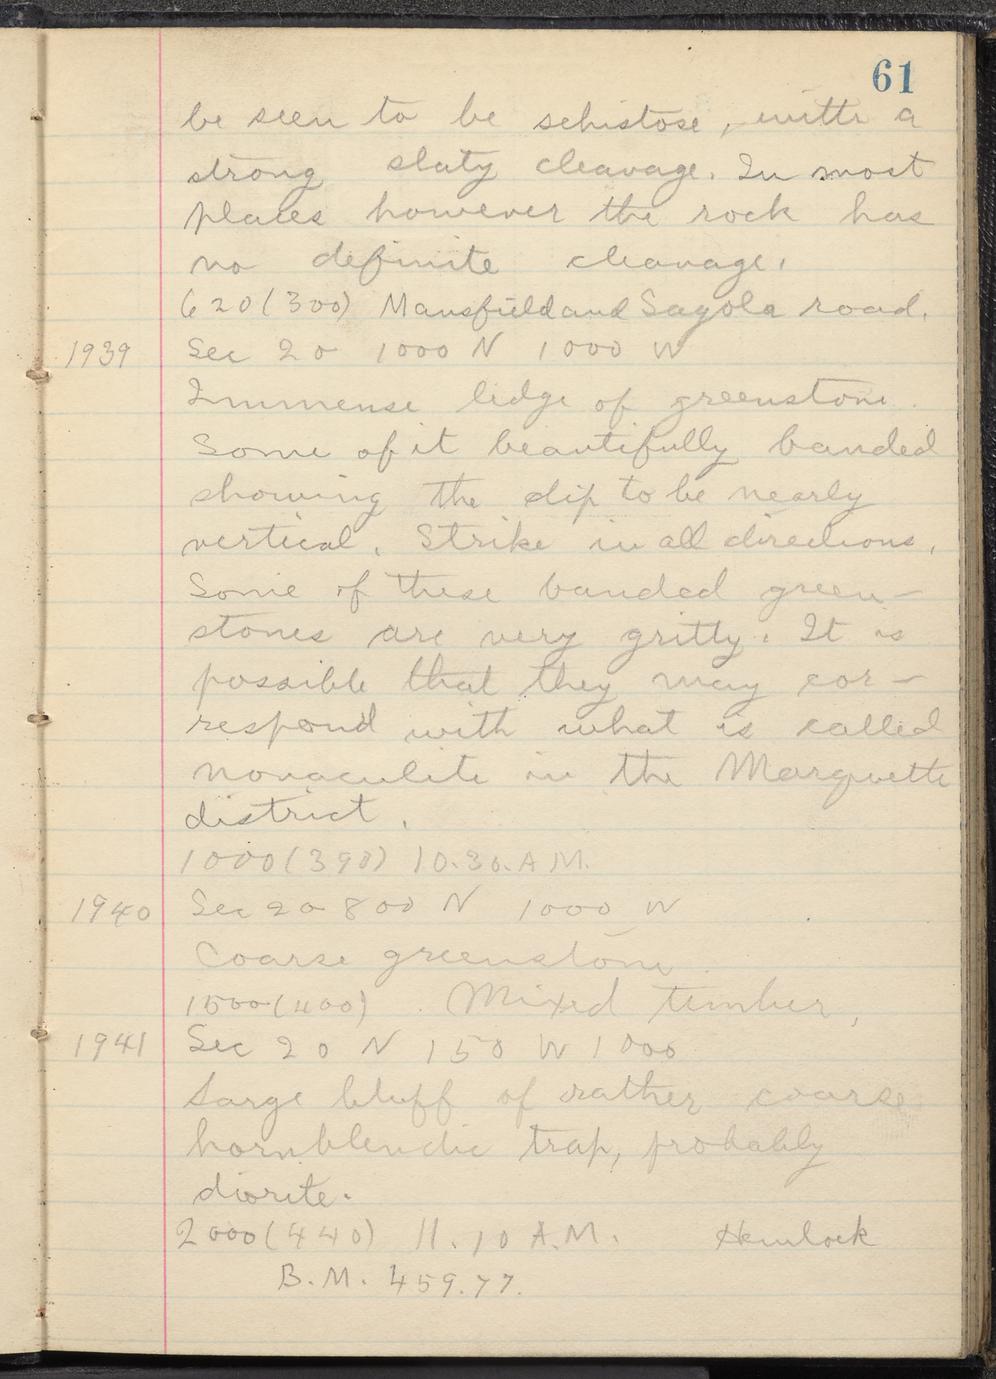 61
be seen to be schistose, with a
strong slaty cleavage. In most
places however the rock has
no definite cleavage.
620(300) Mansfield and Sagola road.
1939 Sec 20 1000 N 1000 W
Immense ledge of greenstone.
Some of it beautifully banded
showing the dip to be nearly
vertical. Strike in all directions.
Some of these banded green-
stones are very gritty. It is
possible that they may cor-
respond with what is called
novaculite in the Marquette
district.
1000(390) 10.30.A.M.
1940 Sec 20 800 N 1000 W
Coarse greenstone.
1500(400). Mixed timber,
1941 Sec 20 N 150 W 1000
Large bluff of rather coarse
hornblendic trap, probably
diorite.
2000(440) 11.10 A.M. Hemlock
B.M. 459.77.